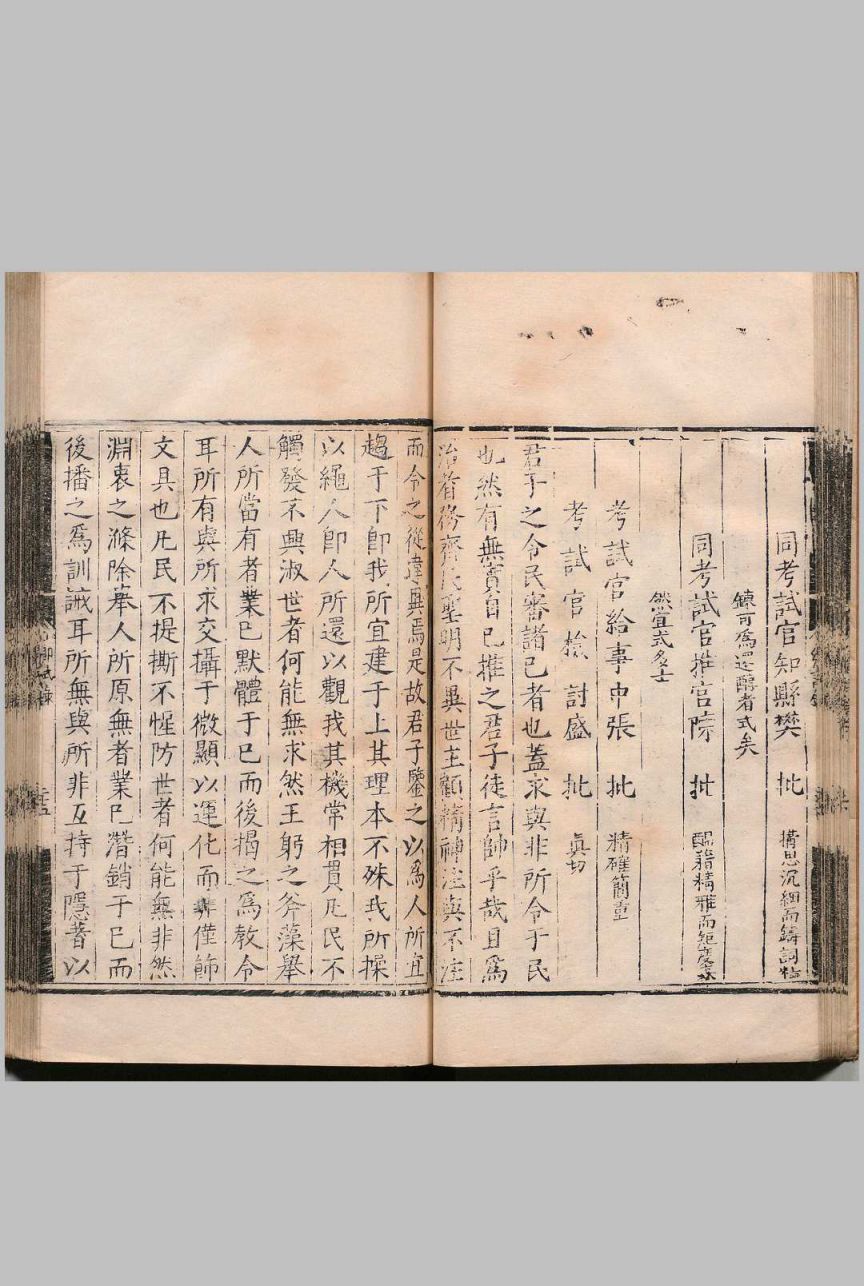 同考試官知縣樊 批 搆思沉細而鑄詞
鍊可爲
者式矣
同考試官推官 批 醞藉精雅而矩
然宜式多士
考試官給事中張 批 精確簡重
考試官檢討盛 批 眞切
君子之令民審諸己者也蓋求與非所令于民
也然有無實自己推之君子徒言帥乎哉且爲
治者務齊民聖明不異世主顧精神注與不注
而令之從違異焉是故君子鑒之以爲人所宜
趨于下卽我所宜建于上其理本不殊我所操
以繩人卽人所還以觀我其機常相貫凡民不
觸發不興淑世者何能無求然王躬之斧藻舉
人所當有者業已默體于己而後揭之爲教令
耳所有與所求交攝于微顯以運化而非僅飾
文具也凡民不提撕不惺防世者何能無非然
淵衷之滌除舉人所原無者業已潛銷于己而
後播之爲訓誡耳所無與所非互持于隱者以